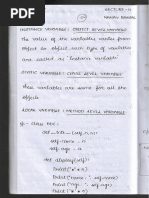 LECTURE-11
NAVEEN BANSAL
INSTANCE VARIABLE : OBJECT LEVEL VARIABLE
The value of the variables varies from
object to object, such type of variables
are called as instance variable.
STATIC VARIABLE : CLASS LEVEL VARIABLE
These variables are same for all the
objects.
LOCAL VARIABLE : METHOD LEVEL VARIABLE
class ABC:
def __init__(self, n, a):
self.name = n
self.age = a
def display(self):
print("*" * n)
print("name :", self.name)
print("age :", self.age)
print("*" * n)